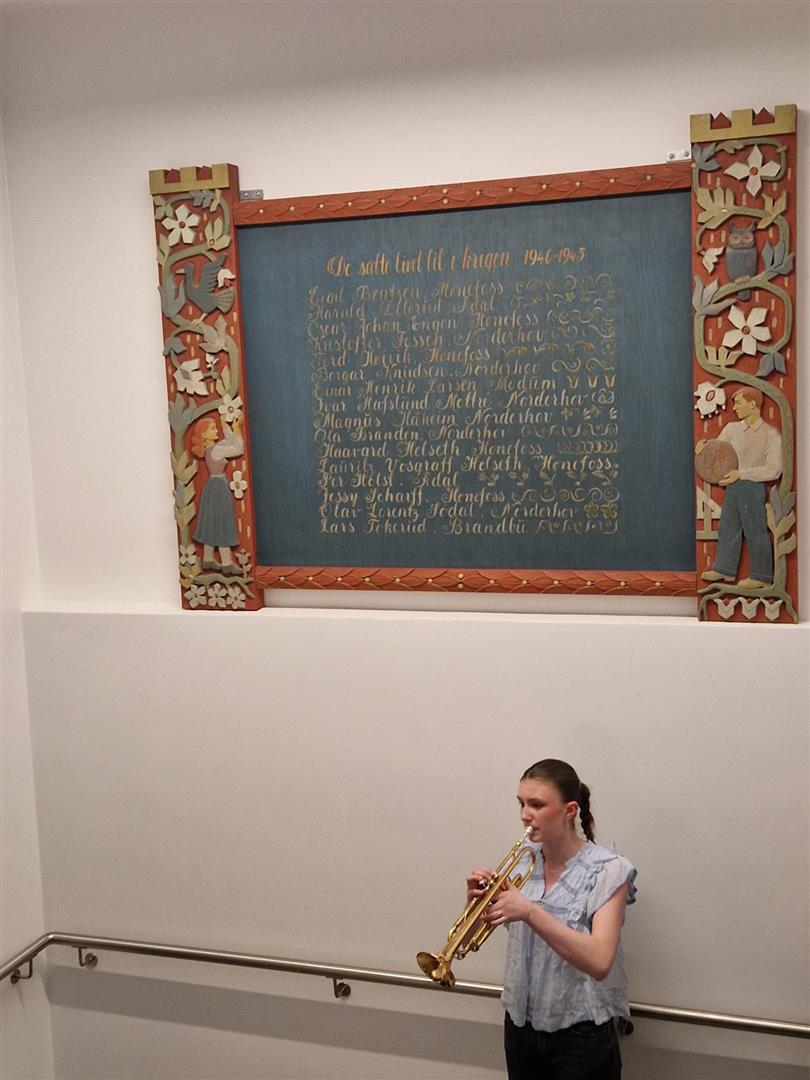 De satte livet til i krigen 1940-1945
Harald Hønefoss
Oscar Johan Engen Hønefoss
Kristoffer Fosseh. Norderhov
Henrik. Hønefoss
Borgar Knudsen. Norderhov
Einar Henrik Larsen Modum
Ivar Hafslund Norderhov
Magnus Haheim Norderhov
Ola Branden Norderhov
Haavard Helseth. Hønefoss
Lauritz Vosgraff Helseth. Hønefoss.
Per Holst. Ådal
Jessy Scharff. Hønefoss
Olav Lorentz Sødal. Norderhov
Lars Tokerud. Brandbu